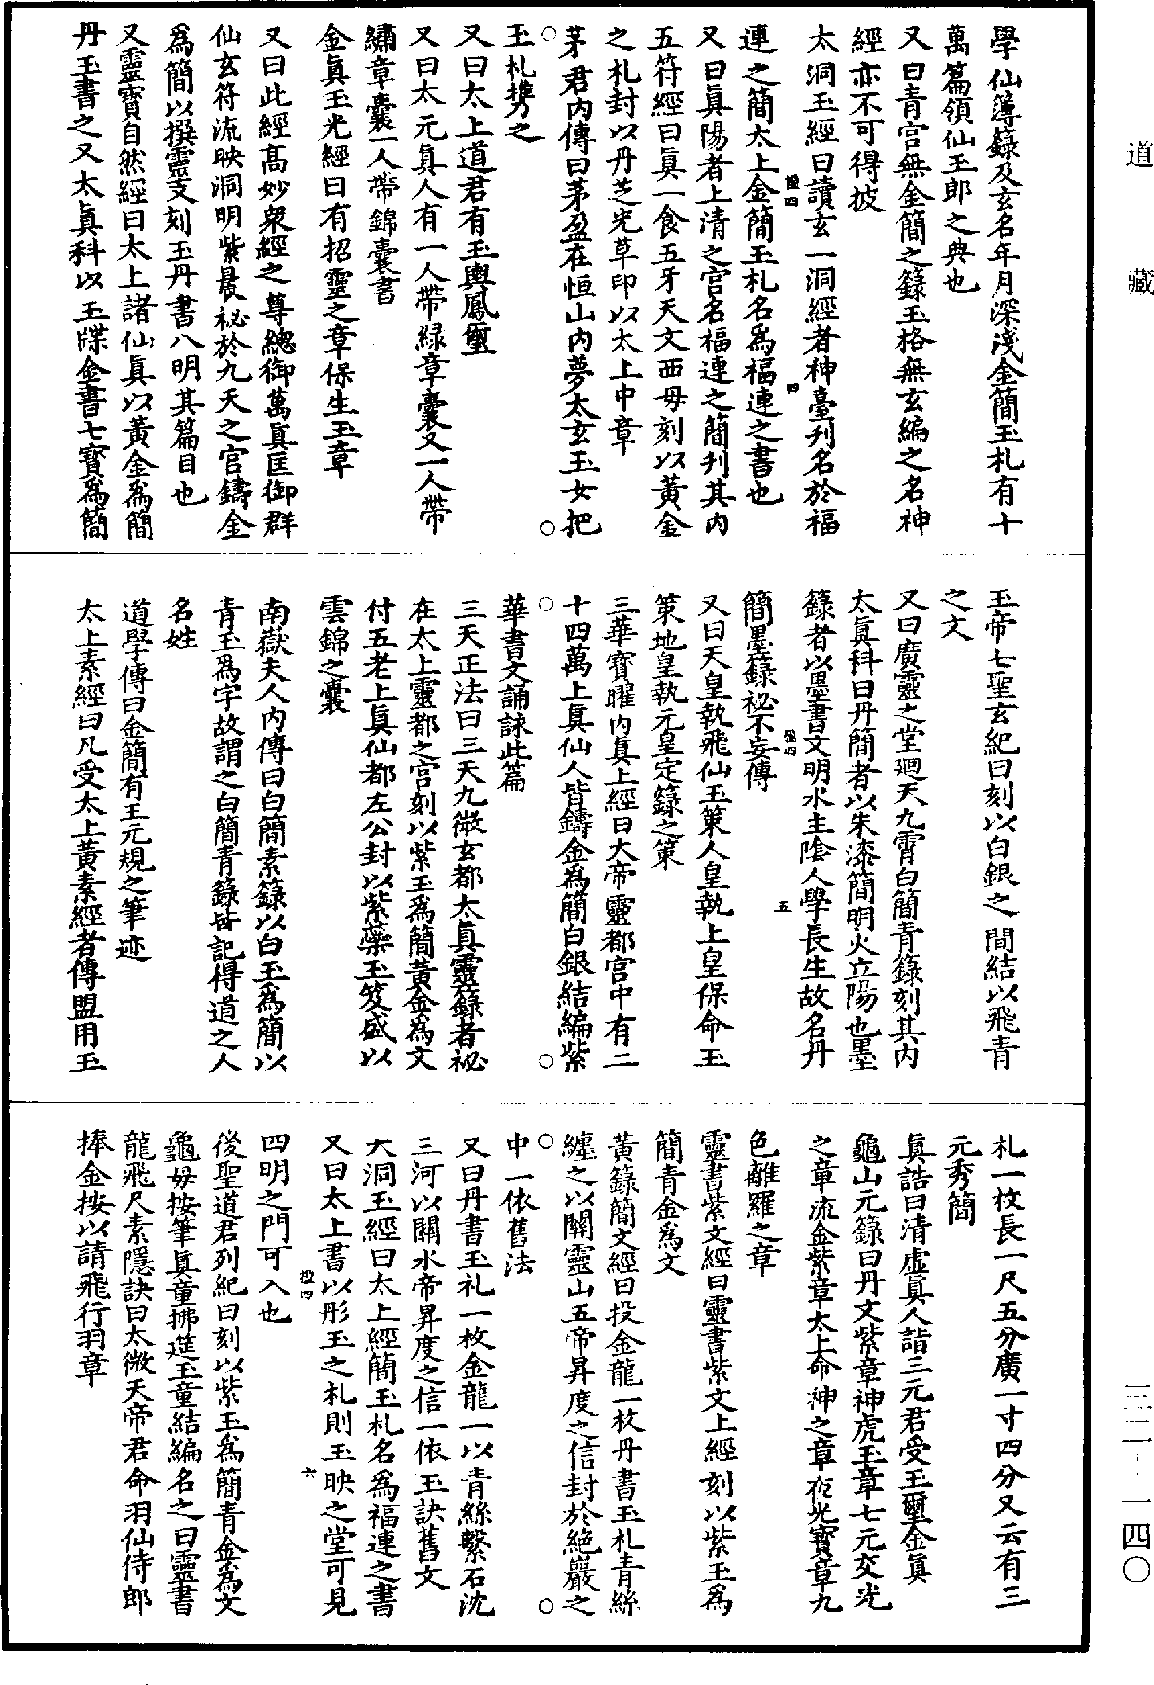 道藏
三二——一四〇
學仙簿錄及玄名年月深淺金簡玉札有十
萬篇領仙玉郎之典也
又曰青宮無金簡之錄玉格無玄編之名神
經亦不可得披
太洞玉經曰讀玄一洞經者神臺刋名於福
連之簡太上金簡玉札名爲福連之書也
又曰眞陽者上清之宮名福連之簡刋其內
五符經曰眞一食五牙天文西母刻以黃金
之札封以丹芝光草印以太上中章
茅君內傳曰茅盈在恒山內夢太玄玉女把
玉札携之
又曰太上道君有玉輿鳳璽
又曰太元眞人有一人帶綠章囊又一人帶
繡章囊一人帶錦囊書
金眞玉光經曰有招靈之章保生玉章
又曰此經高妙衆經之尊總御萬眞匡御群
仙玄符流映洞明紫晨祕於九天之宮鑄金
爲簡以撰靈文刻玉丹書八明其篇目也
又靈寶自然經曰太上諸仙眞以黃金爲簡
丹玉書之又太眞科以玉牒金書七寶爲簡
玉帝七聖玄紀曰刻以白銀之簡結以飛青
之文
又曰廣靈之堂廻天九霄白簡青錄刻其內
太眞科曰丹簡者以朱漆簡明火立陽也墨
錄者以墨書文明水主陰人學長生故名丹
簡墨錄祕不妄傳
又曰天皇執飛仙玉策人皇執上皇保命玉
策地皇執元皇定錄之策
三華寶曜內眞上經曰大帝靈都宮中有二
十四萬上眞仙人皆鑄金爲簡白銀結編紫
華書文誦詠此篇
三天正法曰三天九微玄都太眞靈錄者祕
在太上靈都之宮刻以紫玉爲簡黃金爲文
付五老上眞仙都左公封以紫蘂玉笈盛以
雲錦之囊
南嶽夫人內傳曰白簡素錄以白玉爲簡以
青玉爲字故謂之白簡青錄皆記得道之人
名姓
道學傳曰金簡有王元規之筆迹
太上素經曰凡受太上黃素經者傳盟用玉
札一枚長一尺五分廣一寸四分又云有三
元秀簡
眞誥曰清虛眞人詣三元君受玉璽金眞
龜山元錄曰丹文紫章神虎玉章七元交光
之章流金紫章太上命神之章夜光寶章九
色離羅之章
靈書紫文經曰靈書紫文上經刻以紫玉爲
簡青金爲文
黃籙簡文經曰投金龍一枚丹書玉札青絲
纏之以關靈山五帝昇度之信封於絕巖之
中一依舊法
又曰丹書玉札一枚金龍一以青絲繫石沈
三河以關水帝昇度之信一依玉訣舊文
大洞玉經曰太上經簡玉札名爲福連之書
又曰太上書以彤玉之札則玉映之堂可見
四明之門可入也
後聖道君列紀曰刻以紫玉爲簡青金爲文
龜母按筆眞童拂筵玉童結編名之曰靈書
龍飛尺素隱訣曰太微天帝君命羽仙侍郎
捧金按以請飛行羽章